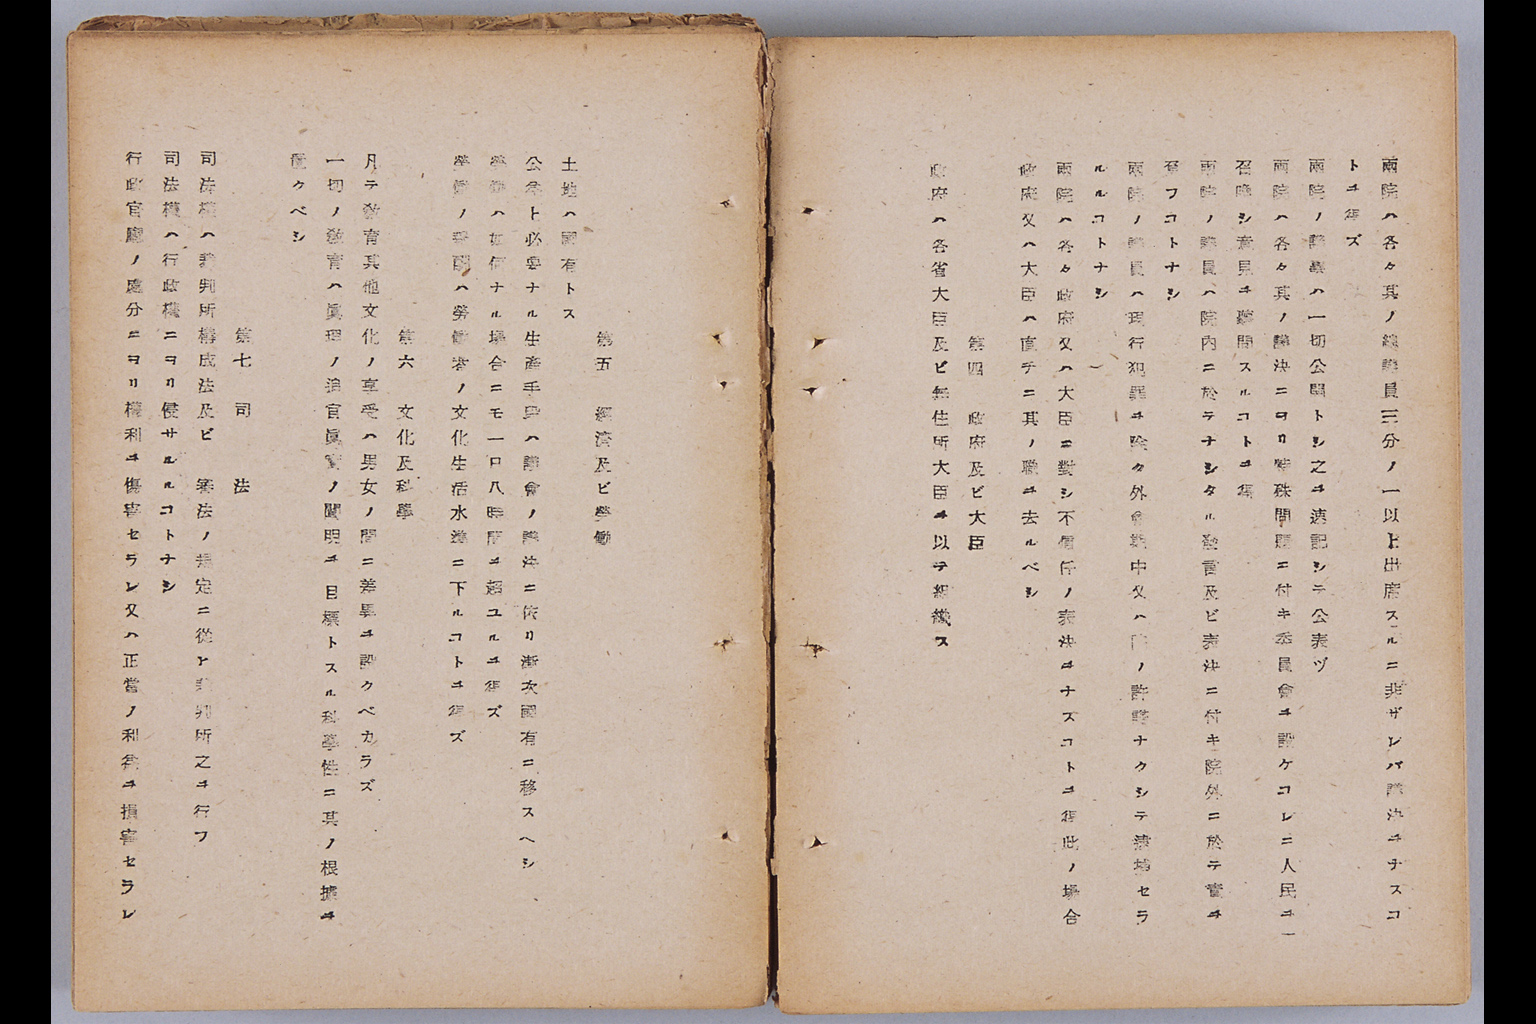 両院ハ各々其ノ総議員三分ノ一以上出席スルニ非ザレバ議決ヲナスコ
トヲ得ズ
両院ノ議事ハ一切公開トシ之ヲ速記シテ公表ヅ
両院ハ各々其ノ議決ニヨリ特殊問題ニ付キ委員會ヲ設ケコレニ人民ヲ
召喚シ意見ヲ聽問スルコトヲ得
両院ノ議員ハ院内ニ於テナシタル發言及ビ表決ニ付キ院外ニ於テ責ヲ
負フコトナシ
両院ノ議員ハ現行犯罪ヲ除ク外會期中又ハ院ノ許諾ナクシテ逮捕セラ
ルルコトナシ
両院ハ各々政府又ハ大臣ニ對シ不信任ノ表決ヲナスコトヲ得此ノ場合
政府又ハ大臣ハ直チニ其ノ職ヲ去ルベシ
第四 政府及ビ大臣
政府ハ各省大臣及ビ無任所大臣ヲ以テ組織ス
第五 經濟及ビ勞働
土地ハ國有トス
公益ト必要ナル生産手段ハ議會ノ議決ニ依リ漸次國有ニ移スヘシ
勞働ハ如何ナル場合ニモ一口八時間ヲ超ユルヲ得ズ
勞働ノ報酬ハ勞働者ノ文化生活水準ニ下ルコトヲ得ズ
第六 文化及科學
凡テ敎育其他文化ノ享受ハ男女ノ間ニ差異ヲ設クベカラズ
一切ノ敎育ハ眞理ノ追官眞實ノ闡明ヲ目標トスル科學性ニ其ノ根據ヲ
置クベシ
第七 司 法
司法權ハ裁判所構成法及ビ 審法ノ規定ニ從ヒ裁判所之ヲ行フ
司法權ハ行政權ニヨリ侵サルルコトナシ
行政官廳ノ處分ニヨリ權利ヲ傷害セラレ又ハ正當ノ利益ヲ損害セラレ